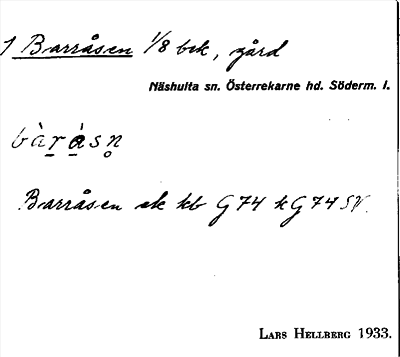 1 Barråsen 1/8 bek, gård
Näshulta sn. Österrekarne hd. Söderm. l.
bàràsn̥
Barråsen ek kb G74 kG74SV.
Lars Hellberg 1933.